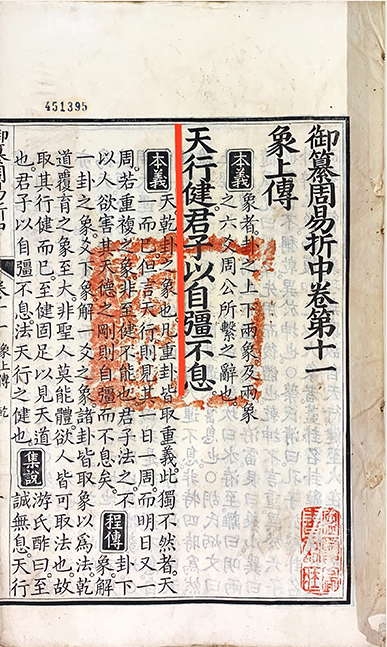 451395
御纂周易折中卷第十一
象上傳
本義
象者。卦之上下兩象。及兩象
之六爻。周公所繫之辭也。
天行健。君子以自彊不息。
本義
天乾卦之象也。凡重卦皆取重義。此獨不然者。天
一而已。但言天行。則見其一日一周。而明日又一
周。若重複之象。非至健不能也。君子法之。不
以人欲害其天德之剛。則自彊而不息矣。
程傳
卦下
象解
一卦之象。爻下象。解一爻之象。諸卦皆取象以爲法。乾
道覆育之象至大。非聖人莫能體。欲人皆可取法也。故
取其行健而已。至健固足以見天道
也。君子以自彊不息。法天行之健也。
集說
游氏酢曰。至
誠無息。天行
象上傳 乾